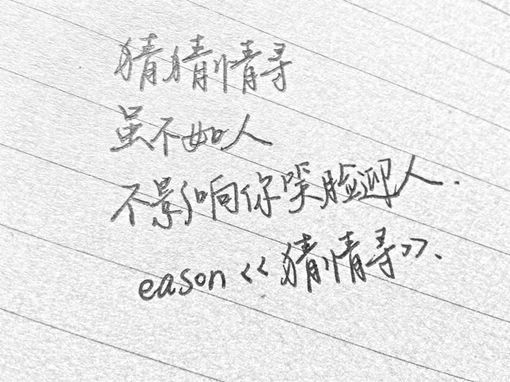 猜猜情寻
虽不如人
不影响你笑脸迎人.
eason <<猜情寻>>.